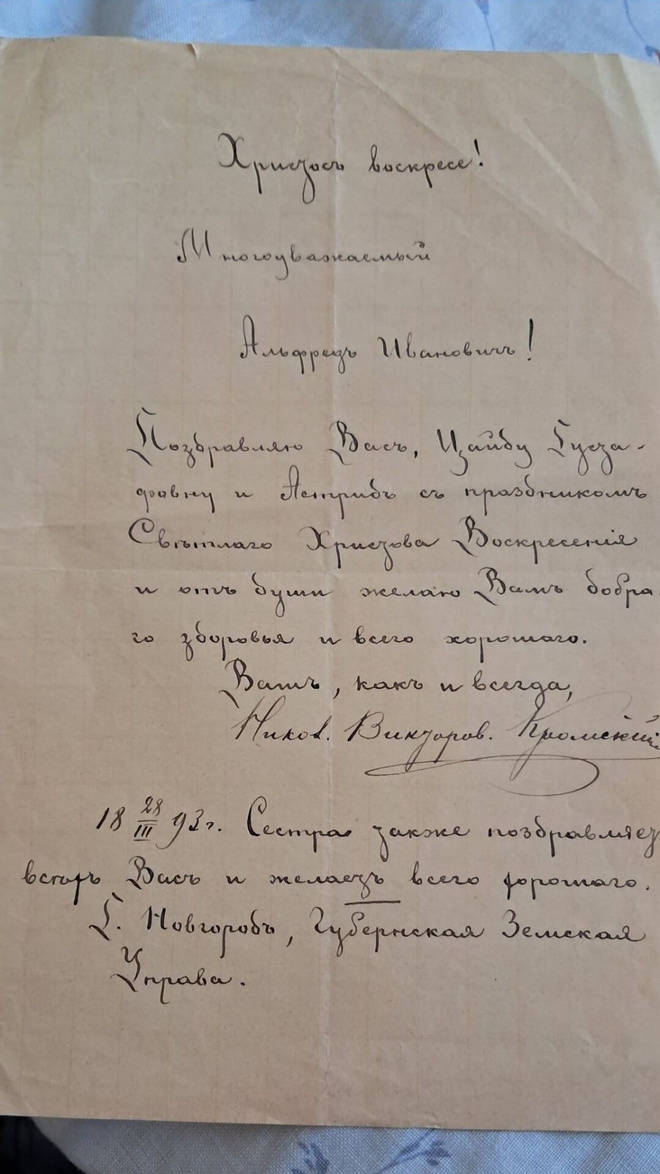 Христосъ воскресе!
Многоуважаемый
Альфредъ Ивановичъ!
Поздравляю Васъ, Иду Густа-
фовну и Астридъ съ праздникомъ
Свѣтлаго Христова Воскресенія
и отъ души желаю Вамъ добра
го здоровья и всего хорошаго.
Вашъ, какъ и всегда,
Никол. Викторов. Кромскій
18 28/III 93 г. Сестра также поздравляет
всѣхъ Васъ и желаетъ всего хорошаго.
Г. Новгородъ, Губернская Земская
Управа.